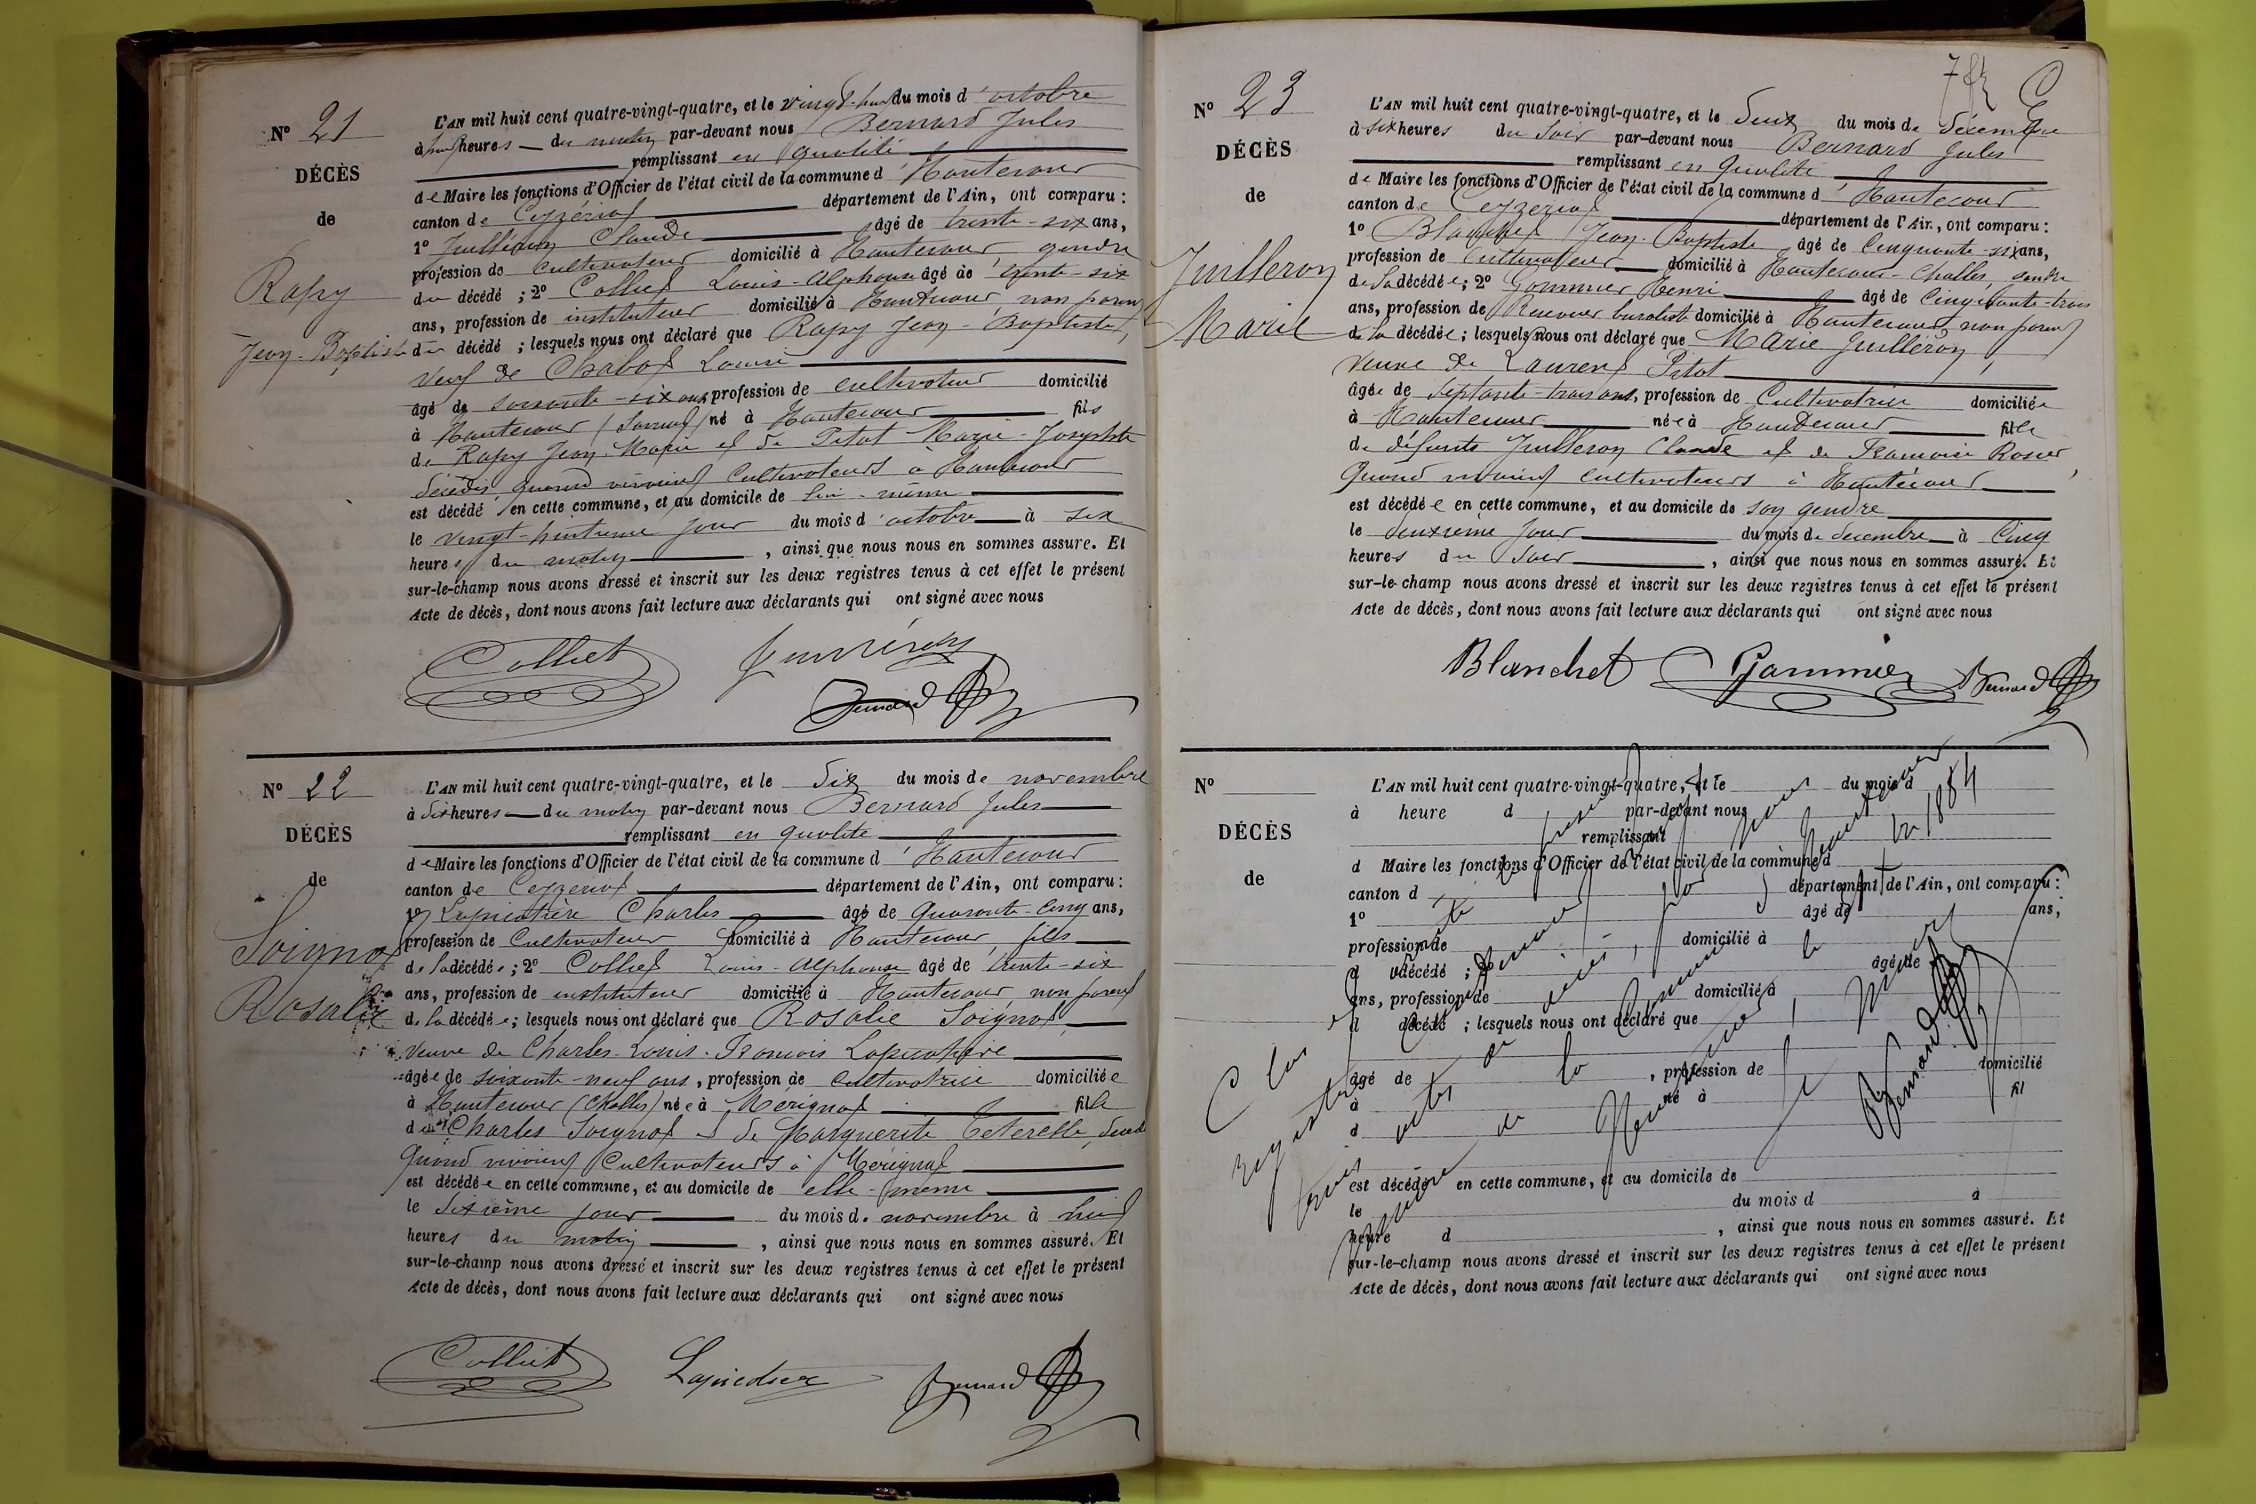 N° 21
DÉCÈS
de
Rapy
Jean-Baptiste
L'AN mil huit cent quatre-vingt-quatre, et le vingt-huit du mois d'octobre
à heures du matin par-devant nous Bernard Jules
remplissant en qualité
de Maire les fonctions d'Officier de l'état civil de la commune d'Hautecour
canton de Ceyzériat département de l'Ain, ont comparu :
1° Juilléron Claude âgé de trente-six ans,
profession de cultivateur domicilié à Hautecour gendre
du décédé ; 2° Colliet Louis-Alphonse âgé de trente-six
ans, profession de instituteur domicilié à Hautecour, non parent
du décédé ; lesquels nous ont déclaré que Rapy Jean-Baptiste,
veuf de Chabot Louise
âgé de soixante-six ans, profession de cultivateur domicilié
à Hautecour né à Hautecour fils
de Rapy Jean-Marie et de Pitot Marie-Josephte
décédés, quand vivaient cultivateurs à Hautecour
est décédé en cette commune, et au domicile de lui-même
le vingt-huitième jour du mois d'octobre à six
heures du matin, ainsi que nous nous en sommes assuré. Et
sur-le-champ nous avons dressé et inscrit sur les deux registres tenus à cet effet le présent
Acte de décès, dont nous avons fait lecture aux déclarants qui ont signé avec nous
Colliet Juilléron
Bernard
N° 22
DÉCÈS
de
Soignat
Rosalie
L'AN mil huit cent quatre-vingt-quatre, et le six du mois de novembre
à dix heures du matin par-devant nous Bernard Jules
remplissant en qualité
de Maire les fonctions d'Officier de l'état civil de la commune d'Hautecour
canton de Ceyzériat département de l'Ain, ont comparu :
1° Lapicotière Charles âgé de quarante-cinq ans,
profession de cultivateur domicilié à Hautecour, fils
de la décédée ; 2° Colliet Louis-Alphonse âgé de trente-six
ans, profession de instituteur domicilié à Hautecour, non parent
de la décédée ; lesquels nous ont déclaré que Rosalie Soignat,
veuve de Charles-Louis-François Lapicotière
âgée de soixante-neuf ans, profession de cultivatrice domiciliée
à Hautecour (Challes) née à Mérignat fille
de Charles Soignat et de Marguerite Téterelle,
quand vivaient cultivateurs à Mérignat
est décédée en cette commune, et au domicile de elle-même
le sixième jour du mois de novembre à huit
heures du matin, ainsi que nous nous en sommes assuré. Et
sur-le-champ nous avons dressé et inscrit sur les deux registres tenus à cet effet le présent
Acte de décès, dont nous avons fait lecture aux déclarants qui ont signé avec nous
Colliet Bernard
N° 23
DÉCÈS
de
Juilleron
Marie
L'AN mil huit cent quatre-vingt-quatre, et le deux du mois de décembre
à six heures du soir par-devant nous Bernard Jules
remplissant en qualité
de Maire les fonctions d'Officier de l'état civil de la commune d'Hautecour
canton de Ceyzeriat département de l'Ain, ont comparu :
1° Blanchet Jean-Baptiste âgé de cinquante-six ans,
profession de cultivateur domicilié à Hautecour-Challes, gendre
de la décédée ; 2° Gommier Henri âgé de cinquante-trois
ans, profession de Receveur buraliste domicilié à Hautecourt, non parent
de la décédée ; lesquels nous ont déclaré que Marie Juilleron,
veuve de Laurent Pitot
âgée de septante-trois ans, profession de Cultivatrice domiciliée
à Hautecour née à Hautecour fille
de défunts Juilleron Claude et de Francoise Rosier,
quand vivaient cultivateurs à Hautecour
est décédée en cette commune, et au domicile de son gendre
le deuxième jour du mois de décembre à cinq
heures du soir, ainsi que nous nous en sommes assuré. Et
sur-le-champ nous avons dressé et inscrit sur les deux registres tenus à cet effet le présent
Acte de décès, dont nous avons fait lecture aux déclarants qui ont signé avec nous
Blanchet Gommier Bernard
N°
DÉCÈS
de
L'AN mil huit cent quatre-vingt-quatre, et le du mois d
à heure d par-devant nous
remplissant
d Maire les fonctions d'Officier de l'état civil de la commune d
canton d département de l'Ain, ont comparu :
1° âgé de ans,
profession de domicilié à
d décédé ; 2° âgé de
ans, profession de domicilié à
d décédé ; lesquels nous ont déclaré que
âgé de , profession de domicilié
à né à fil
d
est décédé en cette commune, et au domicile de
le du mois d à
heure d , ainsi que nous nous en sommes assuré. Et
sur-le-champ nous avons dressé et inscrit sur les deux registres tenus à cet effet le présent
Acte de décès, dont nous avons fait lecture aux déclarants qui ont signé avec nous
Clos et
registre
actes de
la Commune
1884
Bernard